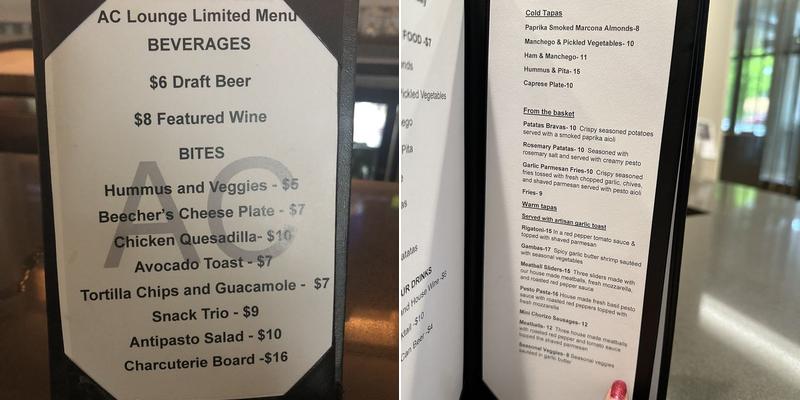 AC Lounge Limited Menu
BEVERAGES
$6 Draft Beer
$8 Featured Wine
BITES
AC
Hummus and Veggies - $5
Beecher's Cheese Plate - $7
Chicken Quesadilla- $10
Avocado Toast - $7
Tortilla Chips and Guacamole - $7
Snack Trio - $9
Antipasto Salad - $10
Charcuterie Board -$16
FOOD -$7
Pita
UR DRINKS
House Wine -$6
-$10
Can Beer -$4
Cold Tapas
Paprika Smoked Marcona Almonds-8
Manchego & Pickled Vegetables- 10
Ham & Manchego- 11
Hummus & Pita- 15
Caprese Plate-10
From the basket
Patatas Bravas- 10 Crispy seasoned potatoes
served with a smoked paprika aioli
Rosemary Patatas- 10 Seasoned with
rosemary salt and served with creamy pesto
Garlic Parmesan Fries-10 Crispy seasoned
fries tossed with fresh chopped garlic, chives,
and shaved parmesan served with pesto aioli
Fries- 9
Warm tapas
Served with artisan garlic toast
Rigatoni-15 In a red pepper tomato sauce &
topped with shaved parmesan
Gambas-17 Spicy garlic butter shrimp sautéed
with seasonal vegetables
Meatball Sliders-15 Three sliders made with
our house made meatballs, fresh mozzarella,
and roasted red pepper sauce
Pesto Pasta-16 House made fresh basil pesto
sauce with roasted red peppers topped with
fresh mozzarella
Mini Chorizo Sausages- 12
Meatballs- 12 Three house made meatballs
with roasted red pepper and tomato sauce
topped the shaved parmesan
Seasonal Veggies- 8 Seasonal veggies
sautéed in garlic butter